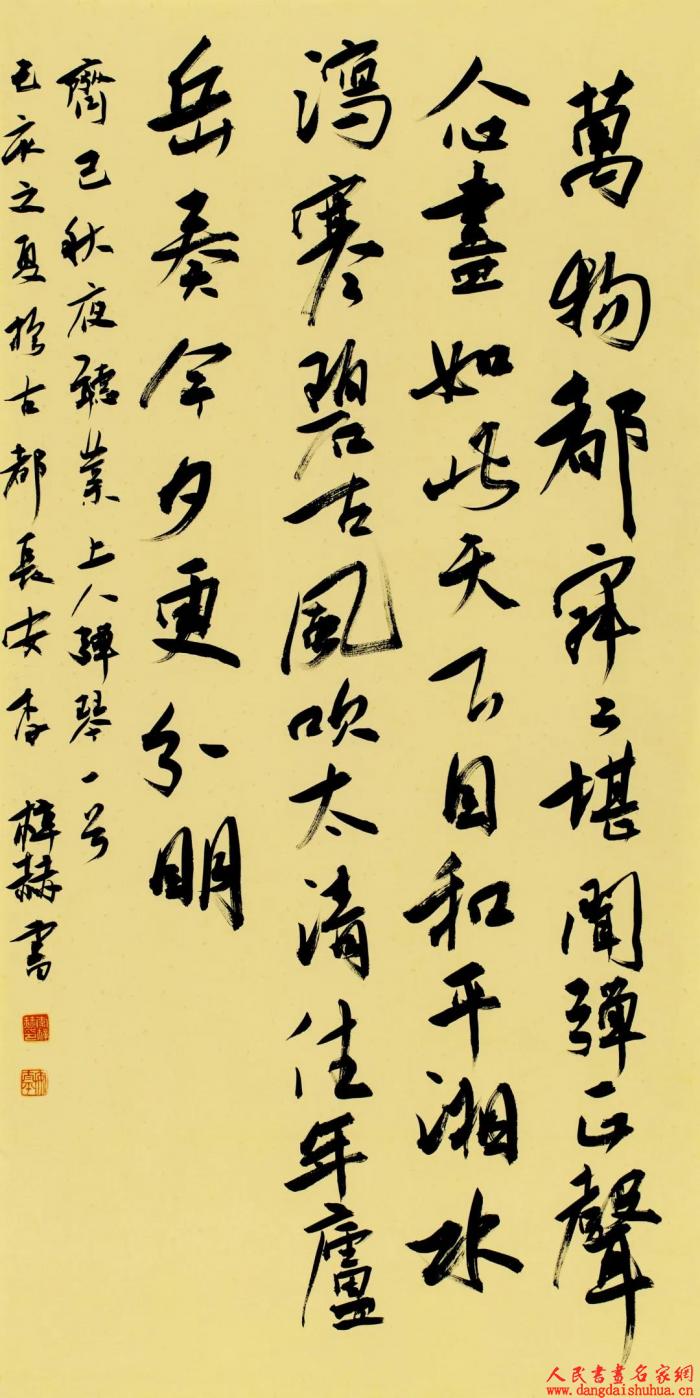 萬物都寂〻堪聞彈正聲
人心盡如此天下自和平湘水
瀉寒碧古風吹太清往年廬
岳奏今夕更分明
齊己秋夜聽業上人彈琴一首
己亥之夏於古都長安李梓赫書
人民書畫名家網
www.dangdaishuhua.com